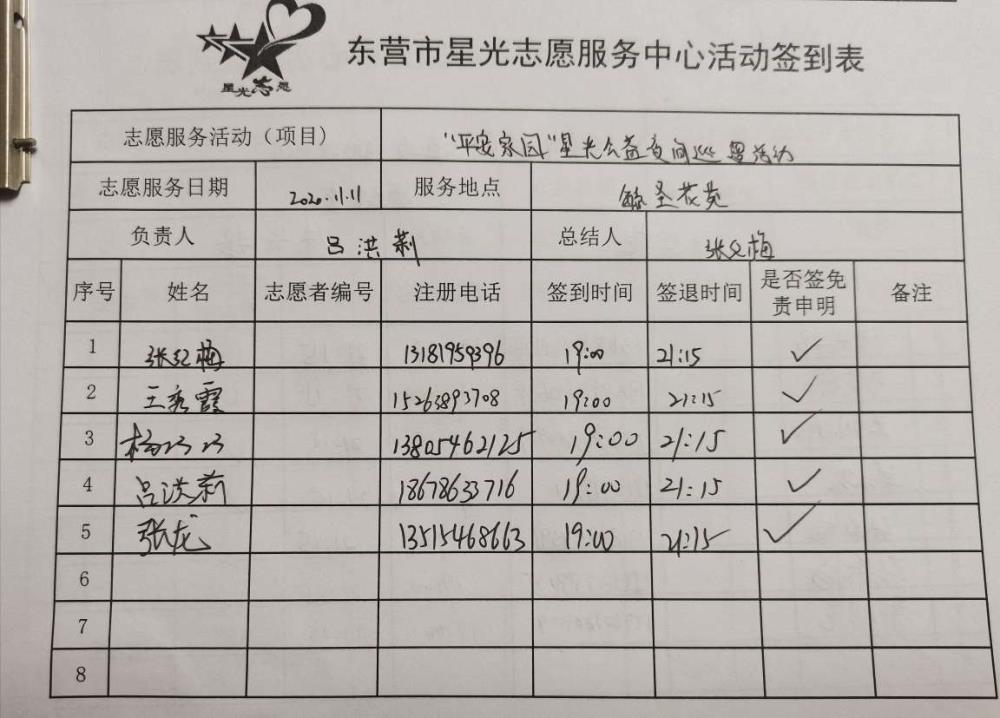 星光志愿
东营市星光志愿服务中心活动签到表
志愿服务活动（项目） “平安家园”星光公益夜间巡逻活动
志愿服务日期 2020.11.11 服务地点 圣花苑
负责人 吕洪莉 总结人 张红梅
序号 姓名 志愿者编号 注册电话 签到时间 签退时间 是否签免责申明 备注
1 张红梅 13181959396 19:00 21:15 ✓
2 王秀霞 15263893708 19:00 21:15 ✓
3 杨 13805462125 19:00 21:15 ✓
4 吕洪莉 18678633716 19:00 21:15 ✓
5 张龙 13515468663 19:00 21:15 ✓
6
7
8